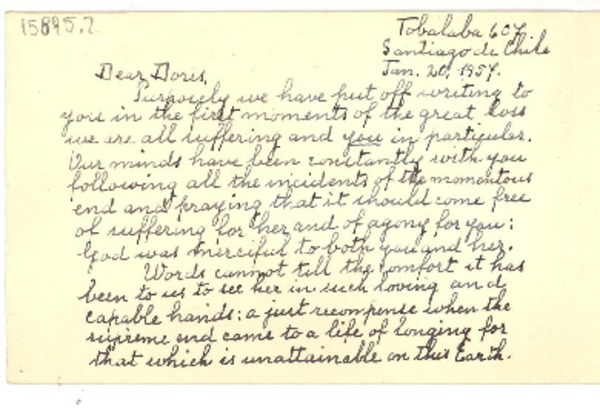 15895.2
Tobalaba 607
Santiago de Chile
Jan. 20, 1957.
Dear Doris,
Purposely we have put off writing to
you in the first moments of the great loss
we are all suffering and you in particular.
Our minds have been constantly with you
following all the incidents of the momentous
end and praying that it should come free
of suffering for her and of agony for you:
God was merciful to both you and her.
Words cannot tell the comfort it has
been to us to see her in such loving and
capable hands: a just recompense when the
supreme end came to a life of longing for
that which is unattainable on this Earth.